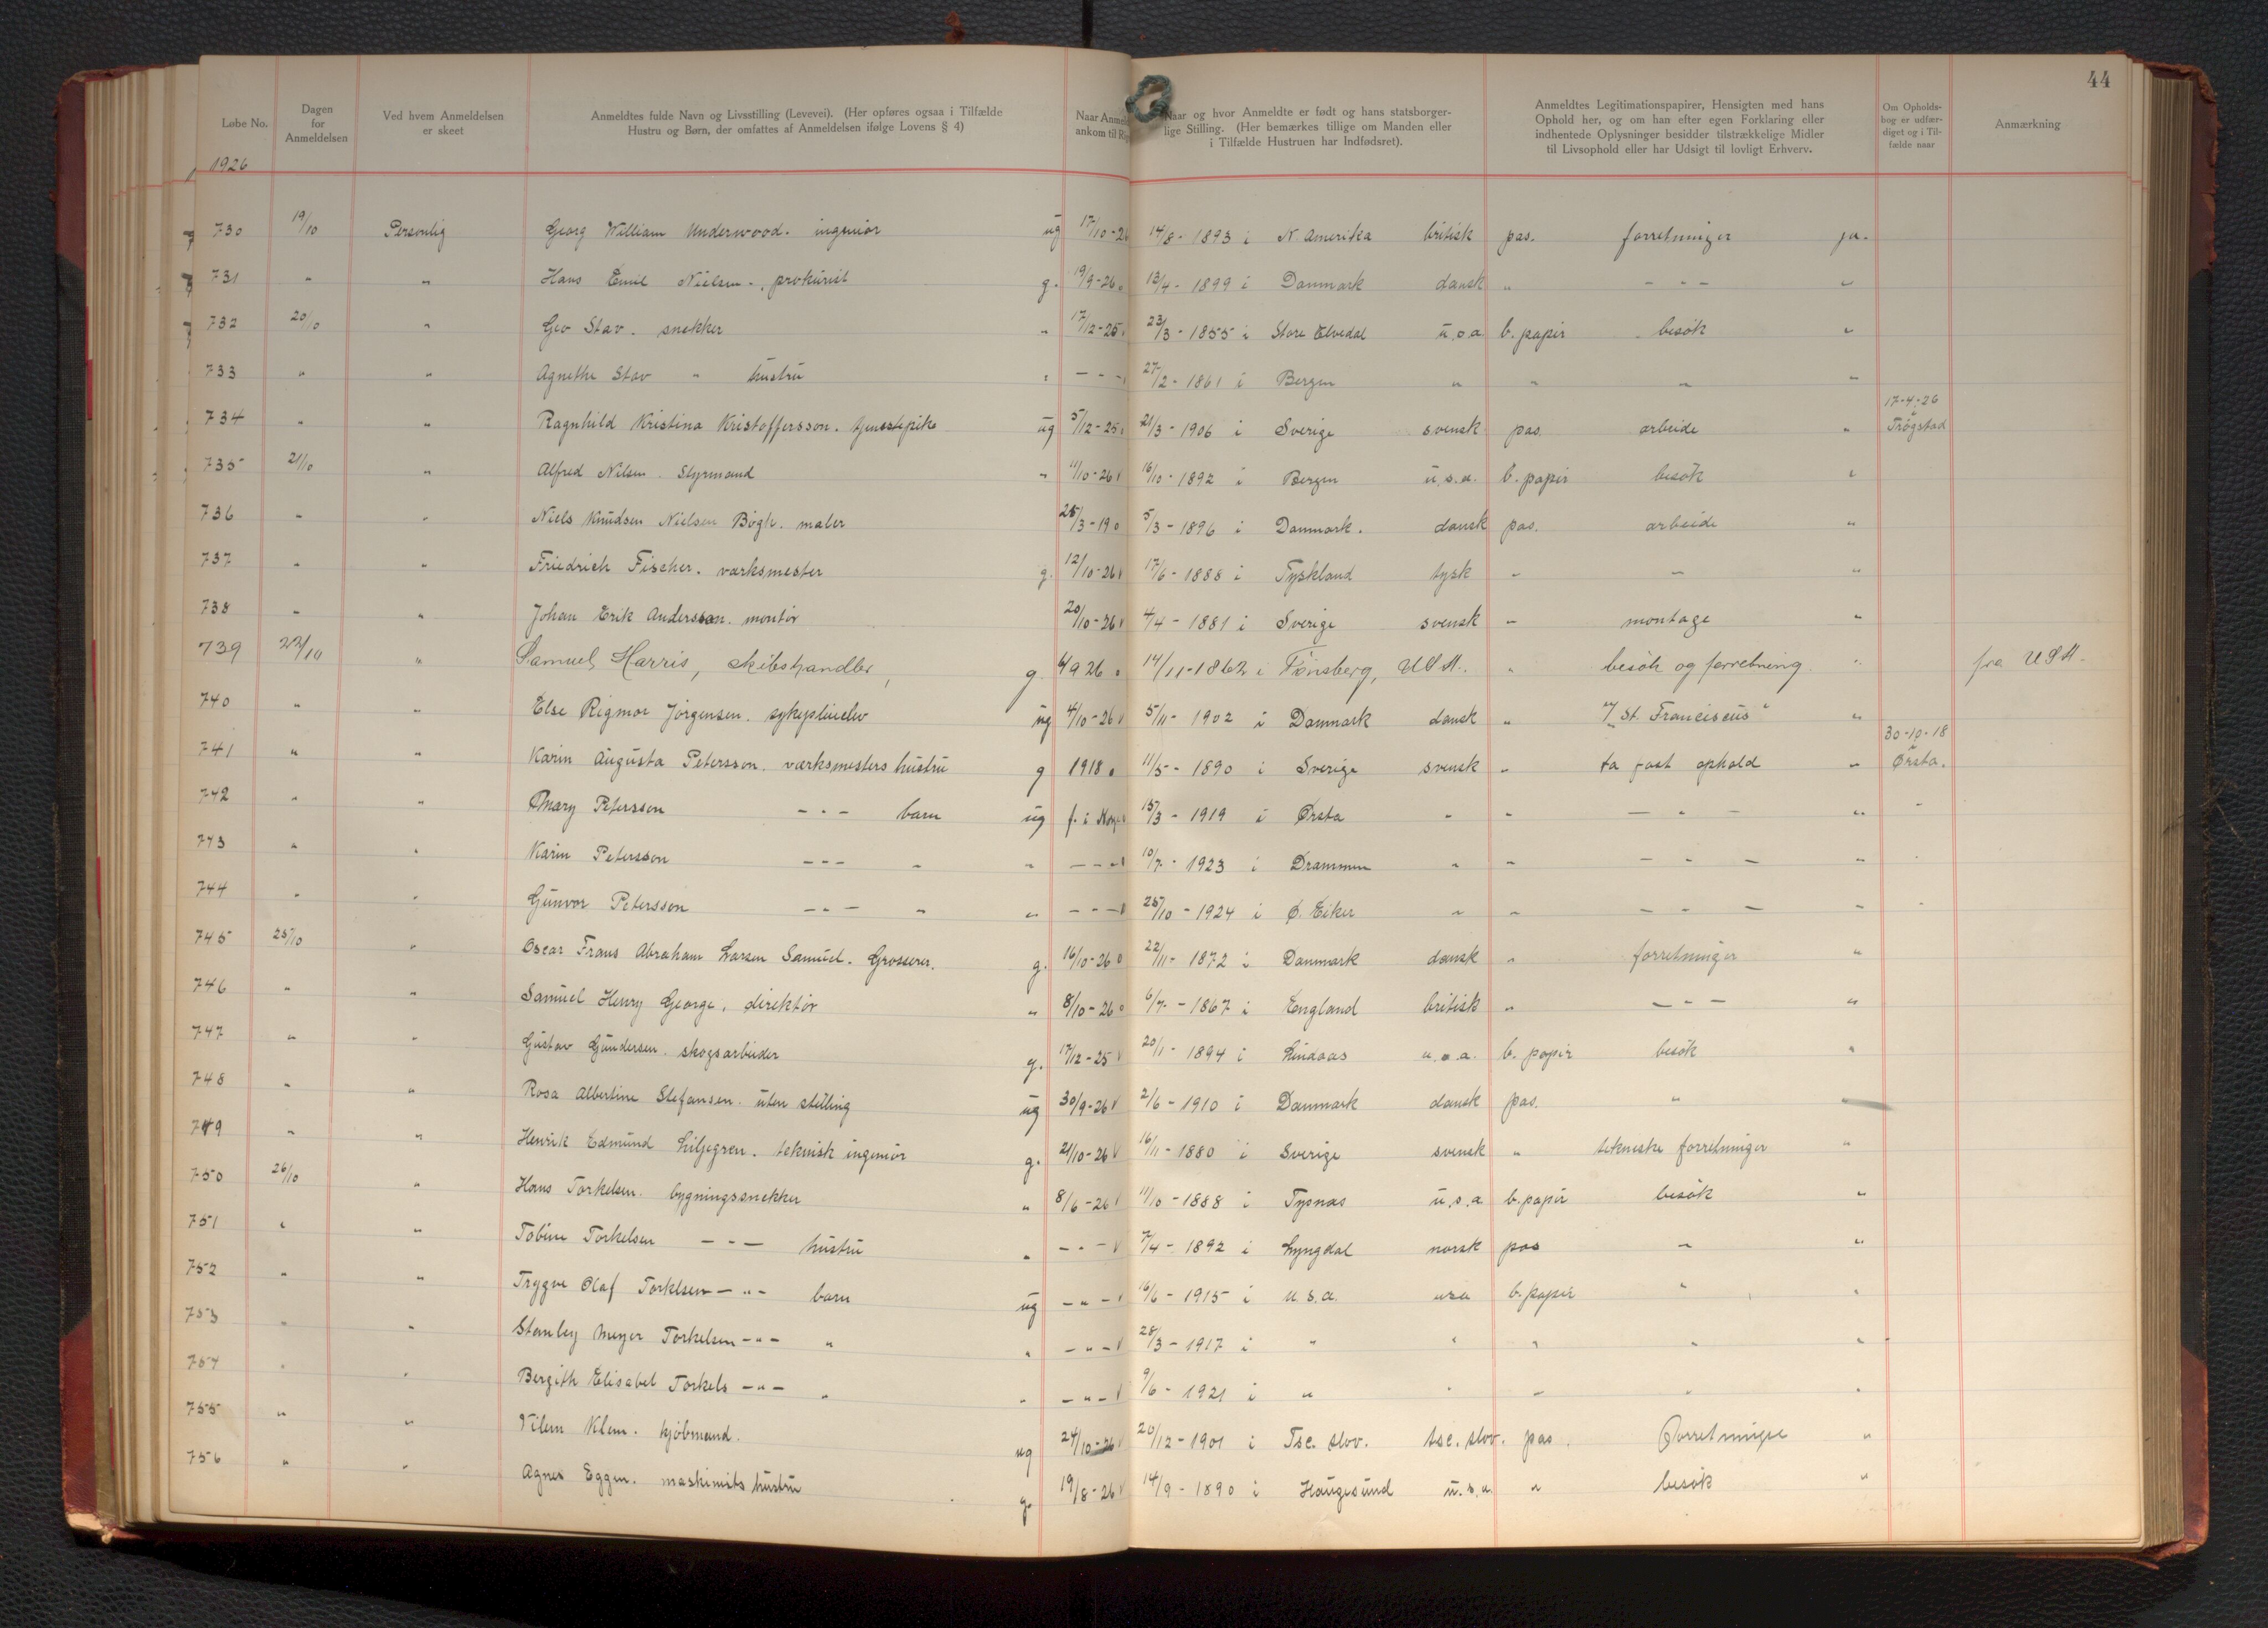 44
Løbe No.
Dagen for Anmeldelsen
Ved hvem Anmeldelsen er skeet
Anmeldtes fulde Navn og Livsstilling (Levevei). (Her opføres ogsaa i Tilfælde Hustru og Børn, der omfattes af Anmeldelsen ifølge Lovens § 4)
Naar Anmel ankom til Ri
Naar og hvor Anmeldte er født og hans statsborgerlige Stilling. (Her bemærkes tillige om Manden eller i Tilfælde Hustruen har Indfødsret).
Anmeldtes Legitimationspapirer, Hensigten med hans Ophold her, og om han efter egen Forklaring eller indhentede Oplysninger besidder tilstrækkelige Midler til Livsophold eller har Udsigt til lovligt Erhverv.
Om Opholdsbog er udfærdiget og i Tilfælde naar
Anmærkning
1926
730 19/10 Personlig Georg William Underwood. ingeniør ug 17/10-26 14/8-1893 i N. Amerika britisk pas. forretninger ja.
731 " " Hans Emil Nielsen., prokurist g. 19/9-26. 13/4-1899 i Danmark dansk " - " - "
732 20/10 " Geo Stav. snekker " 17/12-25 23/3-1855 i Store Elvedal u.s.a b. papir besök "
733 " " Agnethe Stav " hustru " - " - 27/2-1861 i Bergen " " " "
734 " " Ragnhild Kristina Kristoffersson. tjenestepike ug 5/12-25 21/3-1906 i Sverige svensk pas. arbeide " 17-4-26 i Trøgstad
735 21/10 " Alfred Nilsen. Styrmand " 11/10-26 16/10-1892 i Bergen u.s.a. b. papir besök "
736 " " Niels Knudsen Nielsen Bögh. maler 25/3-19 5/3-1896 i Danmark. dansk pas. arbeide "
737 " " Friedrich Fischer. værksmester g. 12/10-26 17/6-1888 i Tyskland tysk " " "
738 " " Johan Erik Andersson. montör 20/10-26 4/4-1881 i Sverige svensk " montage "
739 22/10 " Samuel Harris, skibshandler, g 4/9 26 14/11-1862 i Tönsberg, USA. " besök og forretning. " fra USA.
740 " " Else Rigmor Jörgensen. sykepleielev ug 4/10-26 5/11-1902 i Danmark dansk " "St. Franciscus" "
741 " " Karin Augusta Petersson. værksmesters hustru g 1918 11/5-1890 i Sverige svensk " ta fast ophold " 30-10-18 i Ørsta.
742 " " Mary Petersson - " - barn ug f. i Norge 15/3-1919 i Ørsta " " - " - " "
743 " " Karin Petersson - " - " " - " - 10/7-1923 i Drammen " " - " - " "
744 " " Gunvor Petersson - " - " " - " - 25/10-1924 i Ø. Eiker " " - " - " "
745 25/10 " Oscar Frans Abraham Larsen Samuel. Grosserer. g. 16/10-26 22/11-1872 i Danmark dansk " forretninger "
746 " " Samuel Henry George, direktör " 8/10-26 6/7-1867 i England britisk " - " - "
747 " " Gustav Gundersen. skogsarbeider g. 17/12-25 20/1-1894 i Lindaas u.s.a. b. papir besök "
748 " " Rosa Albertine Stefansen. uten stilling ug 30/9-26 2/6-1910 i Danmark dansk pas. " "
749 " " Henrik Edmund Liljegren. teknisk ingeniör g. 21/10-26 16/11-1880 i Sverige svensk " tekniske forretninger "
750 26/10 " Hans Torkelsen. bygningssnekker " 8/6-26 11/10-1888 i Tysnas u.s.a b. papir besök "
751 " " Tobine Torkelsen - " - hustru " - " - 7/4-1892 i Lyngdal norsk pas " "
752 " " Trygve Olaf Torklsen - " - barn ug - " - 16/6-1915 i u.s.a. usa b. papir " "
753 " " Stanley Meyer Torkelsen - " - " " - " - 28/3-1917 i " " " " "
754 " " Bergith Elisabet Torkels - " - " " - " - 9/6-1921 i " " " " "
755 " " Vilem Klem. kjöbmand. ug 24/10-26 20/12-1901 i Tsc. slov. tsc. slov. pas. Forretninger "
756 " " Agnes Eggen. maskinists hustru g. 19/8-26 14/9-1890 i Haugesund u.s.a. " besök "